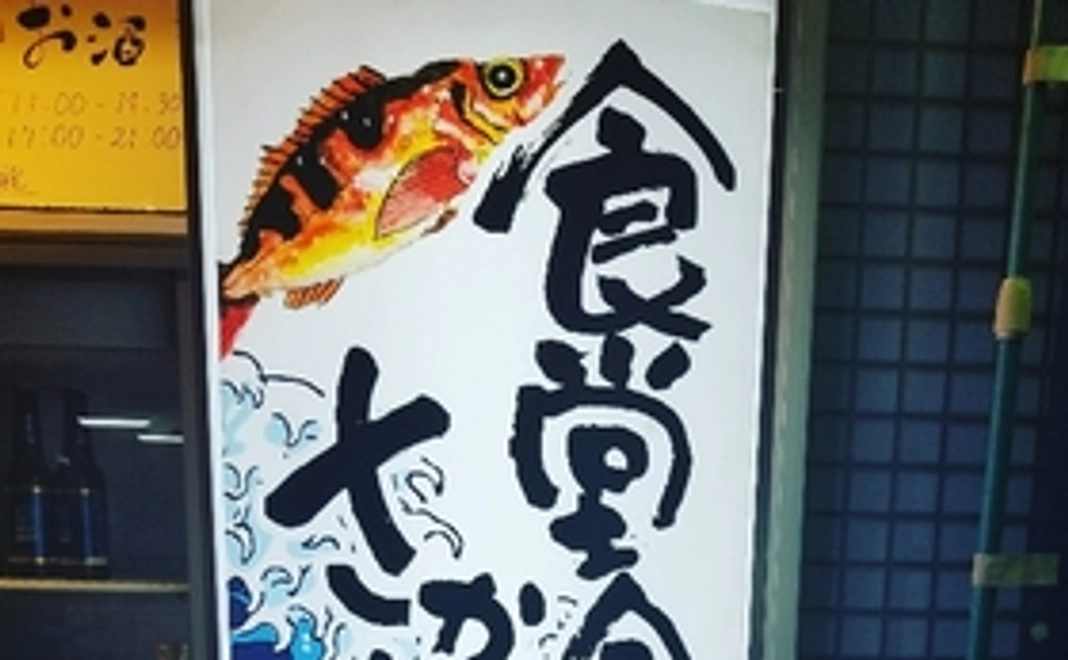 お酒
11:00-14:30
17:00-21:00
食堂
さか